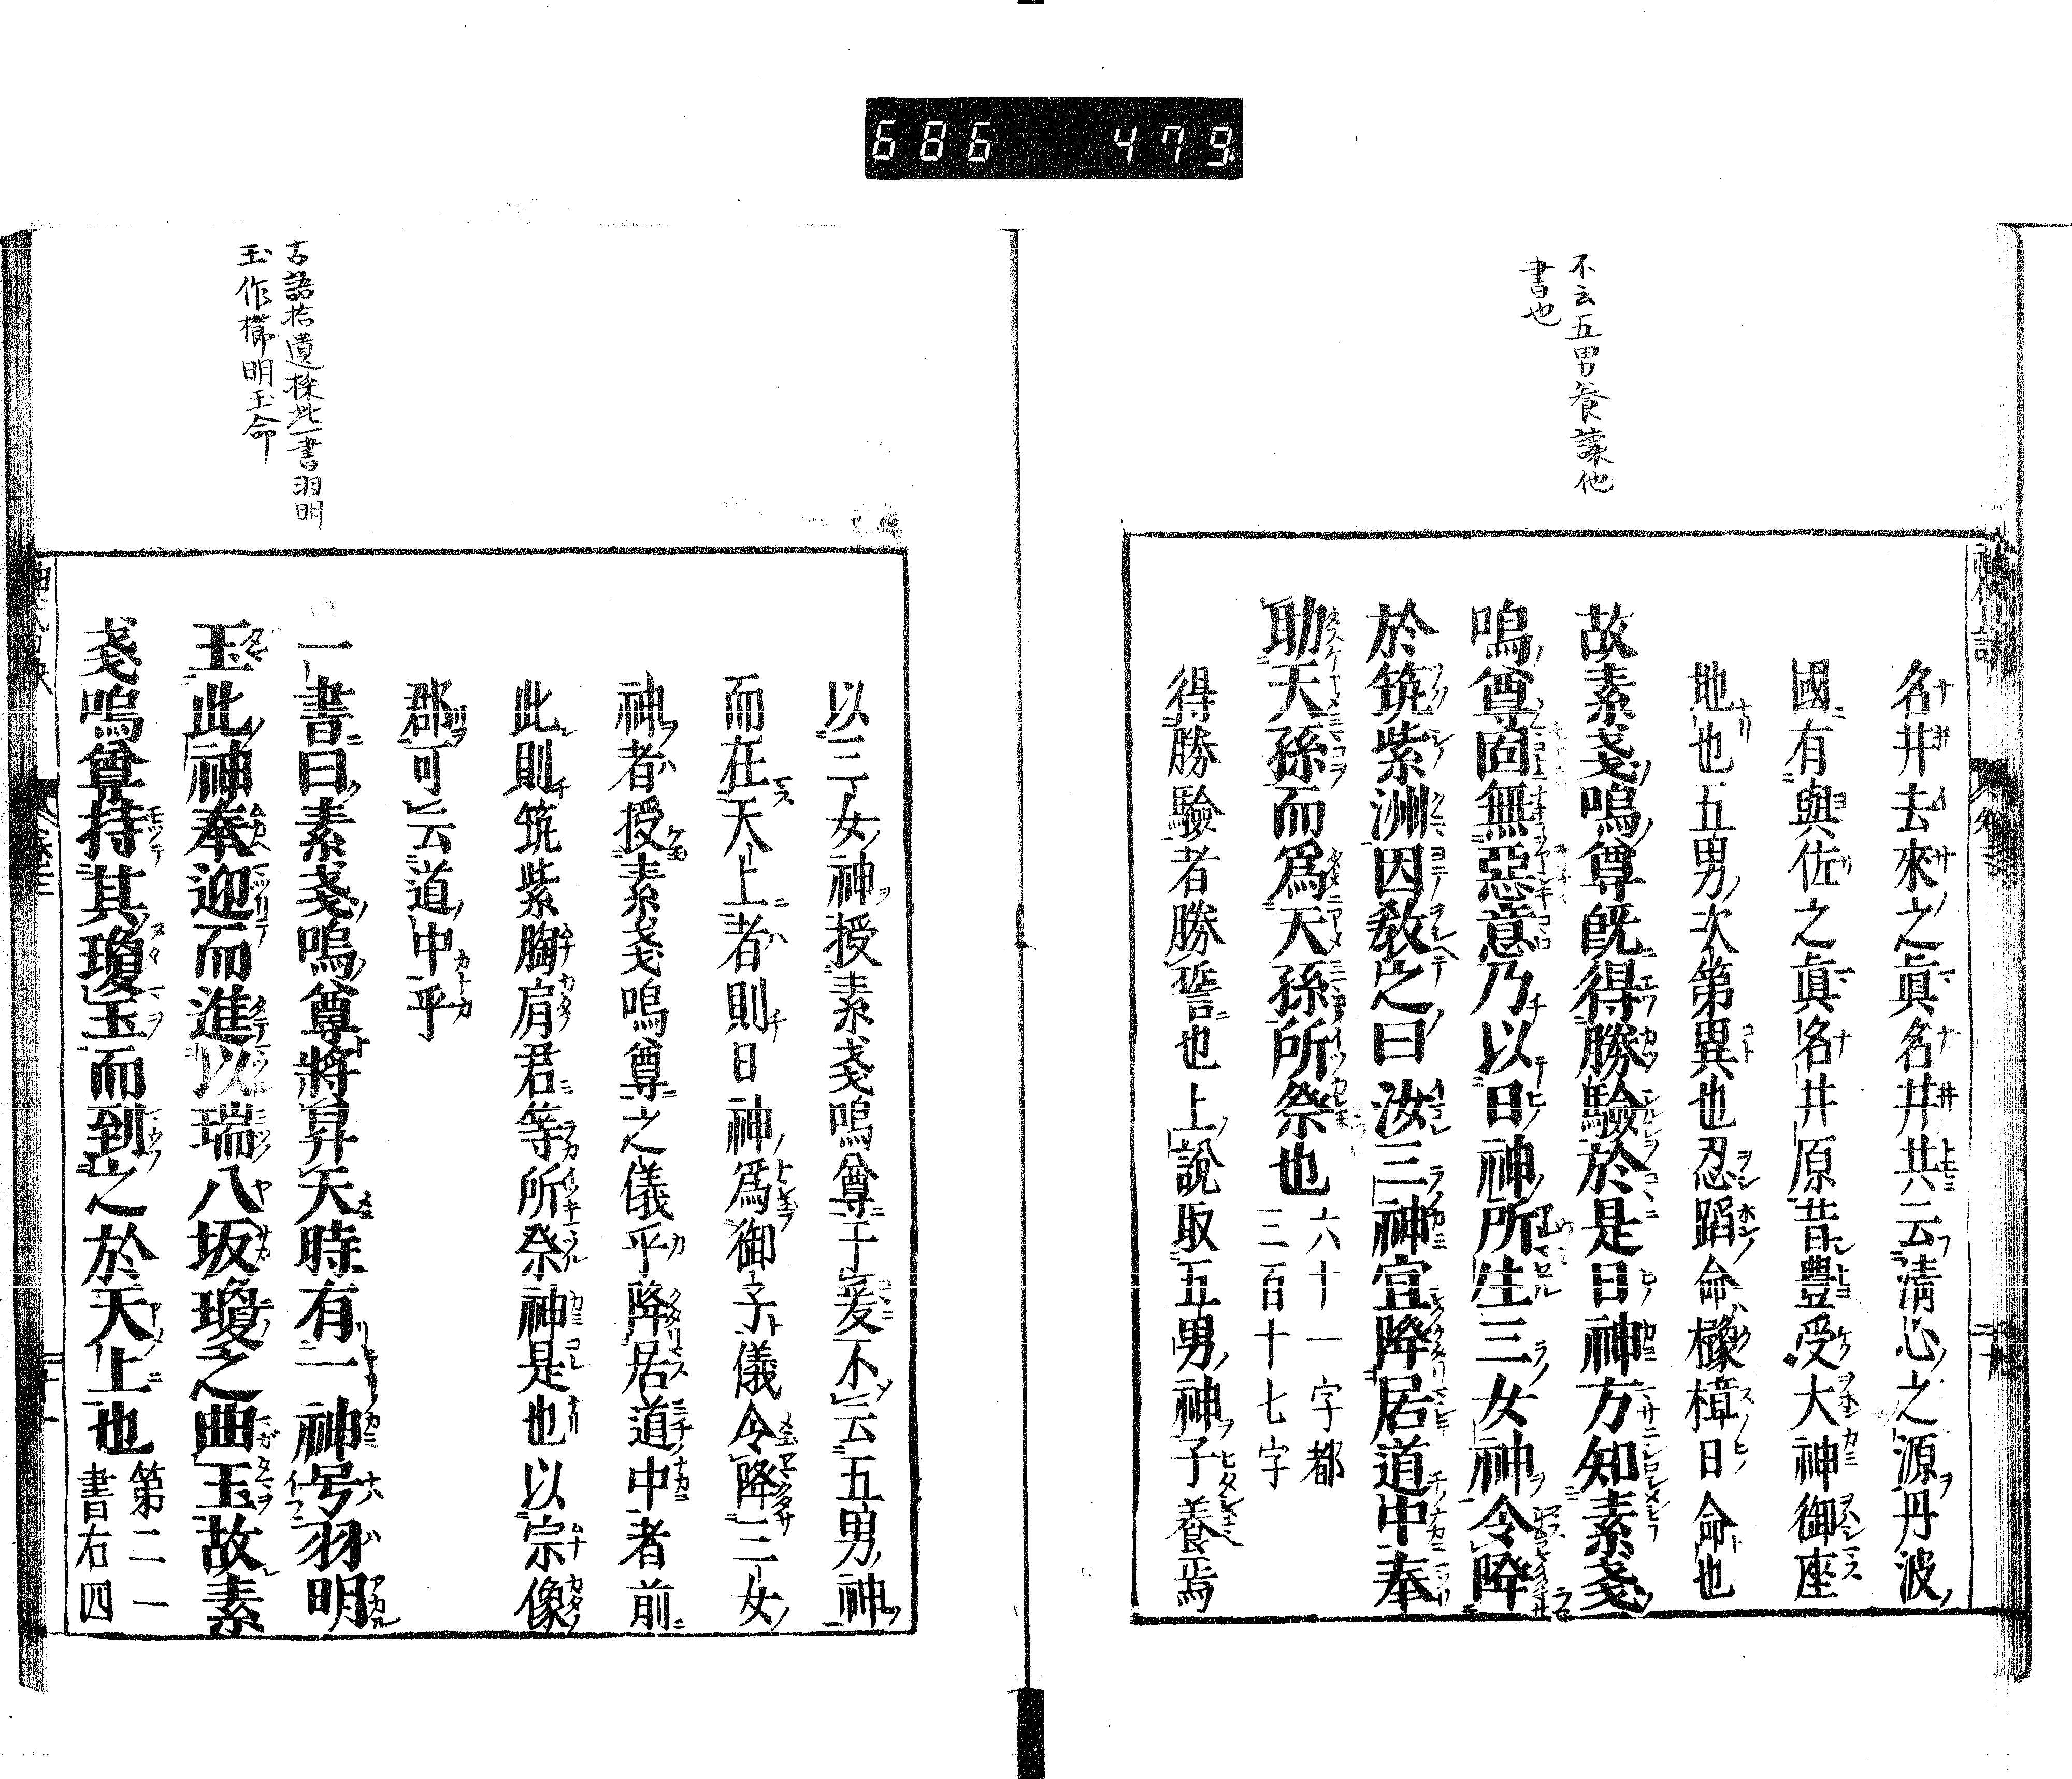 686 479
不云五男養讓他
書也
名井去來之眞名井共云淸心之源丹波
國有與佐之眞名井原昔豐受大神御座
地也五男次第異也忍蹈命櫲樟日命也
故素戔嗚尊旣得勝驗於是日神方知素戔
嗚尊固無惡意乃以日神所生三女神令降
於筑紫洲因敎之曰汝三神宜降居道中奉
助天孫而爲天孫所祭也
六十一字都
三百十七字
得勝驗者勝誓也上說取五男神子養焉
古語拾遺採此一書羽明
玉作櫛明玉命
以三女神授素戔嗚尊于爰不云五男神
而在天上者則日神爲御子儀令降三女
神者授素戔嗚尊之儀乎降居道中者前
此則筑紫胸肩君等所祭神是也以宗像
郡可云道中乎
一書曰素戔嗚尊將昇天時有一神号羽明
玉此神奉迎而進以瑞八坂瓊之曲玉故素
戔嗚尊持其瓊玉而到之於天上也
第二一
書右四